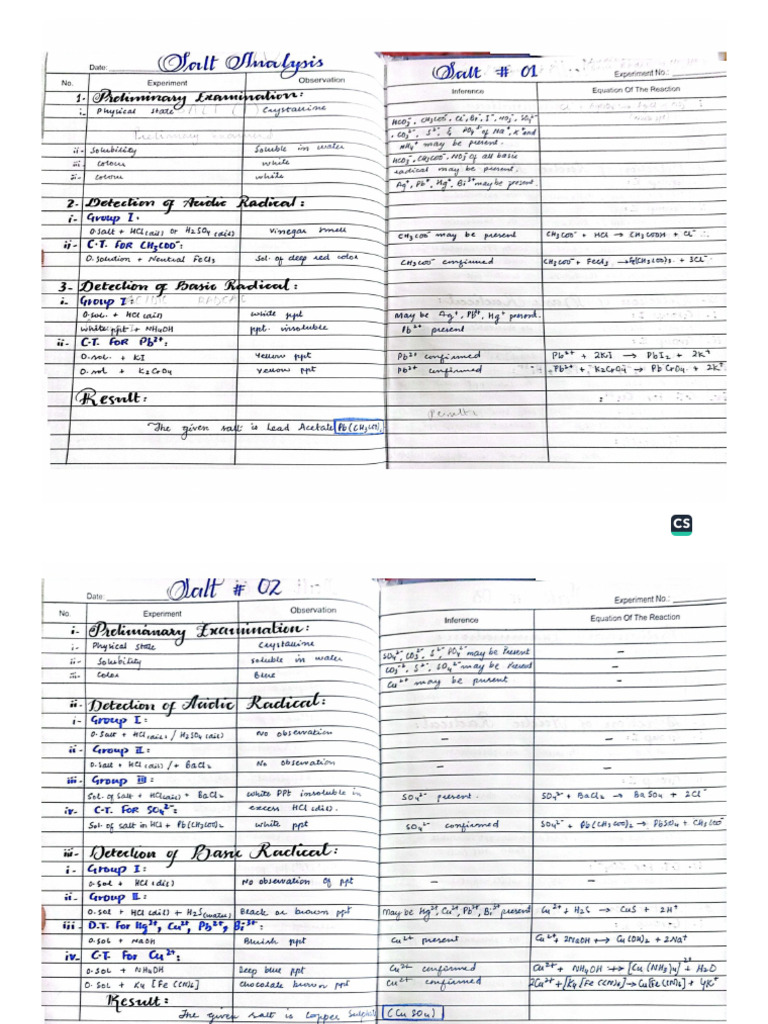 Salt Analysis
Date:
No. Experiment Observation
1- Preliminary Examination:
i. Physical state Crystalline
ii- Solubility Soluble in water
iii- Colour white
ii- Colour white
2- Detection of Acidic Radical:
i- Group I.
O.Salt + HCl(dil) or H2SO4 (dil) Vinegar smell
ii- C.T. FOR CH3COO-:
O.Solution + Neutral FeCl3 Sol. of deep red color
3- Detection of Basic Radical:
i. Group I:
O.sol. + HCl (dil) white ppt
white ppt + NH4OH ppt. insoluble
ii- C.T. FOR Pb2+:
O.sol. + KI Yellow ppt
O.sol + K2CrO4 yellow ppt
Result:
The given salt is Lead Acetate Pb(CH3COO)2
Salt # 01
Experiment No.:
Inference Equation Of The Reaction
HCO3-, CH3COO-, Cl-, Br-, I-, NO3-, SO42-
, CO32-, S2-, & PO43- of Na+, K+ and
NH4+ may be present.
HCO3-, CH3COO-, NO3- of all basic
radical may be present.
Ag+, Pb+, Hg+, Bi3+ may be present.
CH3COO- may be present CH3COO- + HCl → CH3COOH + Cl-
CH3COO- confirmed CH3COO- + FeCl3 → Fe(CH3COO)3 + 3Cl-
May be Ag+, Pb2+, Hg+ present.
Pb2+ present
Pb2+ confirmed Pb2+ + 2KI → PbI2 + 2K+
Pb2+ confirmed Pb2+ + K2CrO4 → PbCrO4 + 2K+
Result:
CS
Salt # 02
Date:
No. Experiment Observation
i- Prelimianary Examination:
i- Physical State Crystalline
ii- Solubility soluble in water
iii- Color Blue
ii- Detection of Acidic Radical:
i- Group I:
O.Salt + HCl(dil) / H2SO4(dil) No observation
ii- Group II:
O.salt + HCl(dil) / + BaCl2 No observation
iii- Group III:
Sol. of salt + HCl(dil) + BaCl2 White PPt insoluble in
iv- C.T. FOR SO42-: excess HCl (dil).
Sol. of salt in HCl + Pb(CH3COO)2 white ppt
iii- Detection of Basic Radical:
i- Group I:
O.sol + HCl (dil) No observation of ppt
ii- Group II:
O.sol + HCl(dil) + H2S(water) Black or brown ppt
iii D.T. FOR Hg2+, Cu2+, Pb2+, Bi3+:
O.sol + NaOH Bluish ppt
iv- C.T FOR Cu2+:
O.Sol + NH4OH Deep blue ppt
O.Sol + K4 [Fe(CN)6] chocolate brown ppt
Result:
The given salt is Copper Sulphate
Experiment No.:
Inference Equation Of The Reaction
SO42-, CO32-, S2-, PO43- may be Present –
CO32-, S2-, SO42- may be Present –
Cu2+ may be present –
– –
– –
SO42- present. SO42- + BaCl2 → BaSO4 + 2Cl-
SO42- confirmed SO42- + Pb(CH3COO)2 → PbSO4 + CH3COO-
– –
May be Hg2+, Cu2+, Pb2+, Bi3+ present Cu2+ + H2S → CuS + 2H+
Cu2+ present Cu2+ + 2NaOH → Cu(OH)2 + 2Na+
Cu2+ confirmed Cu2+ + NH4OH → [Cu(NH3)4]2+ + H2O
Cu2+ confirmed 2Cu2+ + K4[Fe(CN)6] → Cu[Fe(CN)6] + 4K+
(CuSO4)